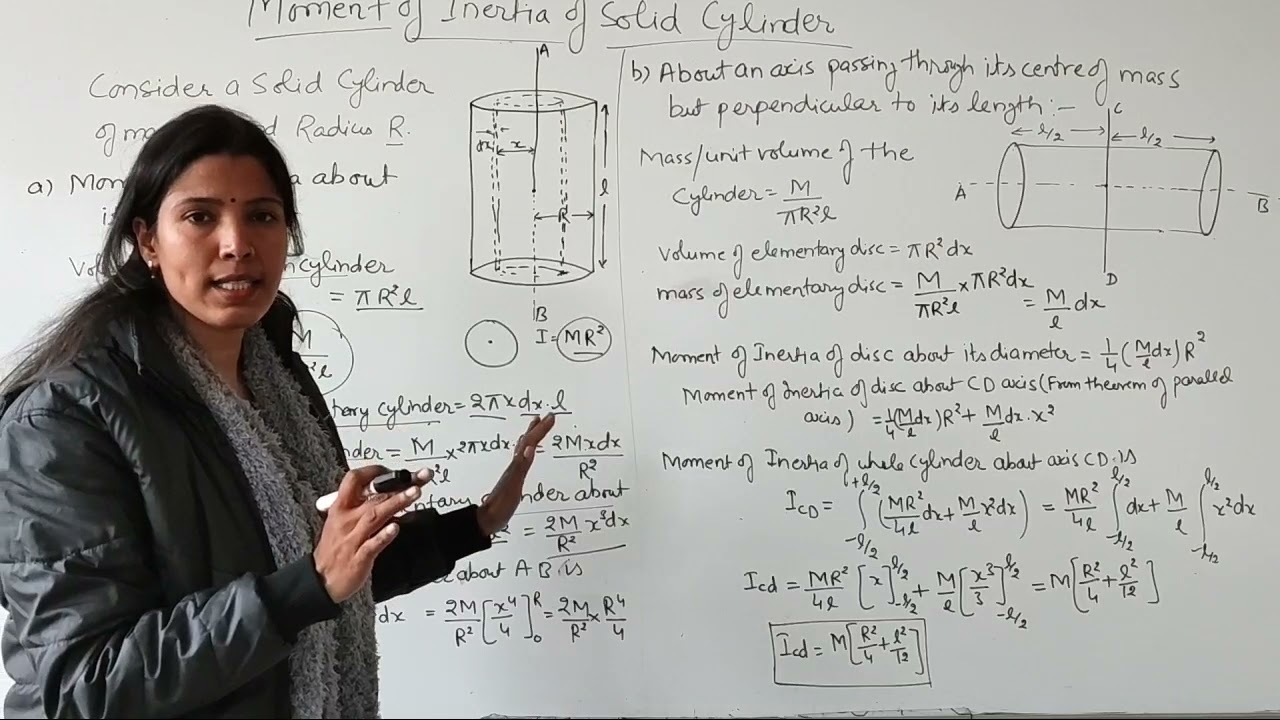 Moment of Inertia of Solid Cylinder
Consider a Solid Cylinder
of Radius R.
a) about
cylinder
= πR²l
cylinder = 2πx dx·l
= M × 2πx dx = 2Mxdx/R²
cylinder about
= 2M/R² x³dx
about AB is
dx = 2M/R² [x⁴/4]₀ᴿ = 2M/R² × R⁴/4
A
dx
x
R
l
B
I = MR²
b) About an axis passing through its centre of mass
but perpendicular to its length :-
C
l/2 l/2
A
B
D
Mass/unit volume of the
Cylinder = M/πR²l
Volume of elementary disc = πR²dx
mass of elementary disc = M/πR²l × πR²dx
= M/l dx
Moment of Inertia of disc about its diameter = 1/4 (M/l dx) R²
Moment of Inertia of disc about CD axis (From theorem of parallel
axis) = 1/4 (M/l dx) R² + M/l dx · x²
Moment of Inertia of whole cylinder about axis CD is
I_CD = ∫₋l/2⁺l/2 (MR²/4l dx + M/l x²dx) = MR²/4l ∫₋l/2 l/2 dx + M/l ∫₋l/2 l/2 x²dx
Icd = MR²/4l [x]₋l/2 l/2 + M/l [x³/3]₋l/2 l/2 = M[R²/4 + l²/12]
Icd = M[R²/4 + l²/12]